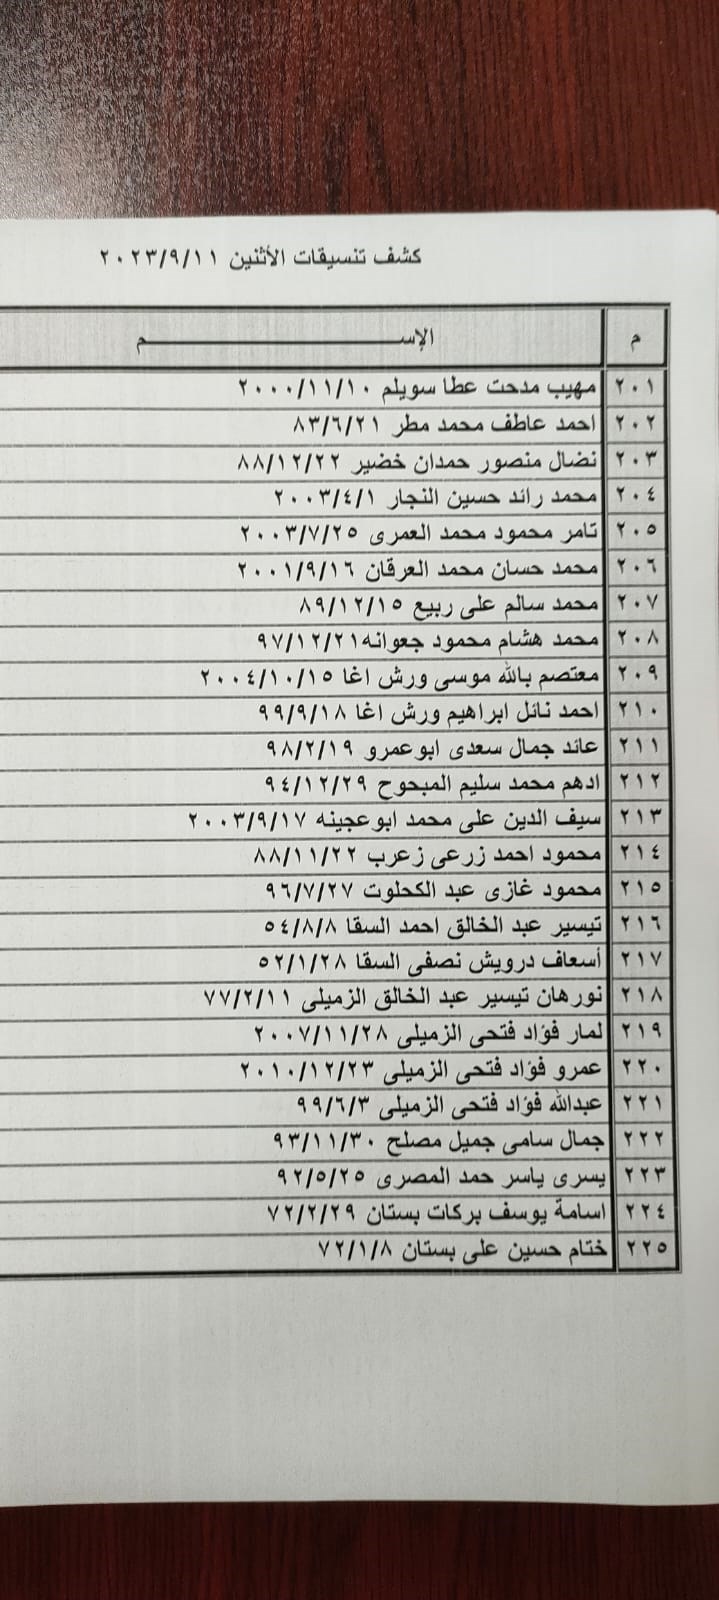 كشف تنسيقات الأثنين ٢٠٢٣/٩/١١
م الإســـــــــــــم
٢٠١ مهيب مدحت عطا سويلم ٢٠٠٠/١١/١٠
٢٠٢ احمد عاطف محمد مطر ٨٣/٦/٢١
٢٠٣ نضال منصور حمدان خضير ٨٨/١٢/٢٢
٢٠٤ محمد رائد حسين النجار ٢٠٠٣/٤/١
٢٠٥ تامر محمود محمد العمرى ٢٠٠٣/٧/٢٥
٢٠٦ محمد حسان محمد العرقان ٢٠٠١/٩/١٦
٢٠٧ محمد سالم على ربيع ٨٩/١٢/١٥
٢٠٨ محمد هشام محمود جعوانه ٩٧/١٢/٢١
٢٠٩ معتصم بالله موسى ورش اغا ٢٠٠٤/١٠/١٥
٢١٠ احمد نائل ابراهيم ورش اغا ٩٩/٩/١٨
٢١١ عائد جمال سعدى ابوعمرو ٩٨/٢/١٩
٢١٢ ادهم محمد سليم المبحوح ٩٤/١٢/٢٩
٢١٣ سيف الدين على محمد ابوعجينه ٢٠٠٣/٩/١٧
٢١٤ محمود احمد زرعى زعرب ٨٨/١١/٢٢
٢١٥ محمود غازى عبد الكحلوت ٩٦/٧/٢٧
٢١٦ تيسير عبد الخالق احمد السقا ٥٤/٨/٨
٢١٧ أسعاف درويش نصفى السقا ٥٢/١/٢٨
٢١٨ نورهان تيسير عبد الخالق الزميلى ٧٧/٢/١١
٢١٩ لمار فؤاد فتحى الزميلى ٢٠٠٧/١١/٢٨
٢٢٠ عمرو فؤاد فتحى الزميلى ٢٠١٠/١٢/٢٣
٢٢١ عبدالله فؤاد فتحى الزميلى ٩٩/٦/٣
٢٢٢ جمال سامى جميل مصلح ٩٣/١١/٣٠
٢٢٣ يسرى ياسر حمد المصرى ٩٢/٥/٢٥
٢٢٤ اسامة يوسف بركات بستان ٧٢/٢/٢٩
٢٢٥ ختام حسين على بستان ٧٢/١/٨